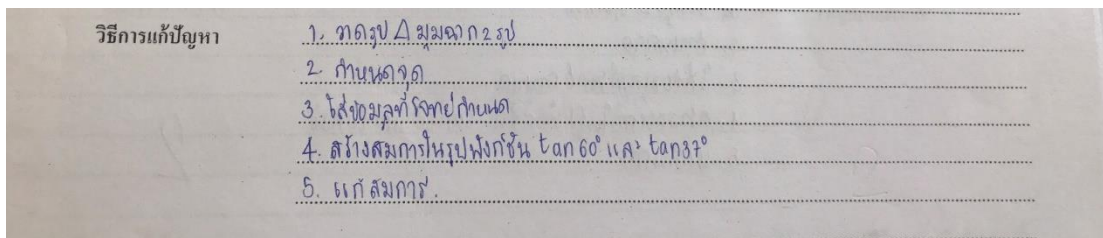 วิธีการแก้ปัญหา 1. วาดรูป △ มุมฉาก 2 รูป
2. กำหนดจุด
3. ใส่ข้อมูลที่โจทย์กำหนด
4. สร้างสมการในรูปฟังก์ชัน tan 60° และ tan 37°
5. แก้สมการ.